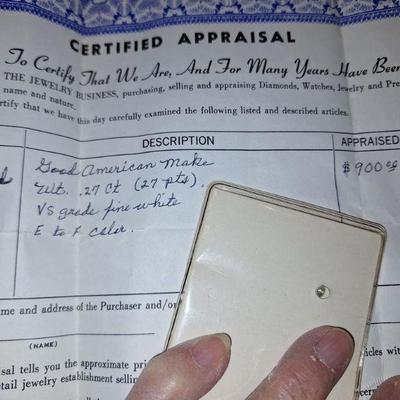 CERTIFIED APPRAISAL
To Certify That We Are, And For Many Years Have Been
THE JEWELRY BUSINESS, purchasing, selling and appraising Diamonds, Watches, Jewelry and Pre
name and nature.
ertify that we have this day carefully examined the following listed and described articles.
DESCRIPTION APPRAISED
Good American Make $900.00
Wt. .27 Ct (27 pts).
VS grade fine white
E to F Color.
me and address of the Purchaser and/or
(NAME)
sal tells you the approximate pri
etail jewelry establishment selling
ticles with